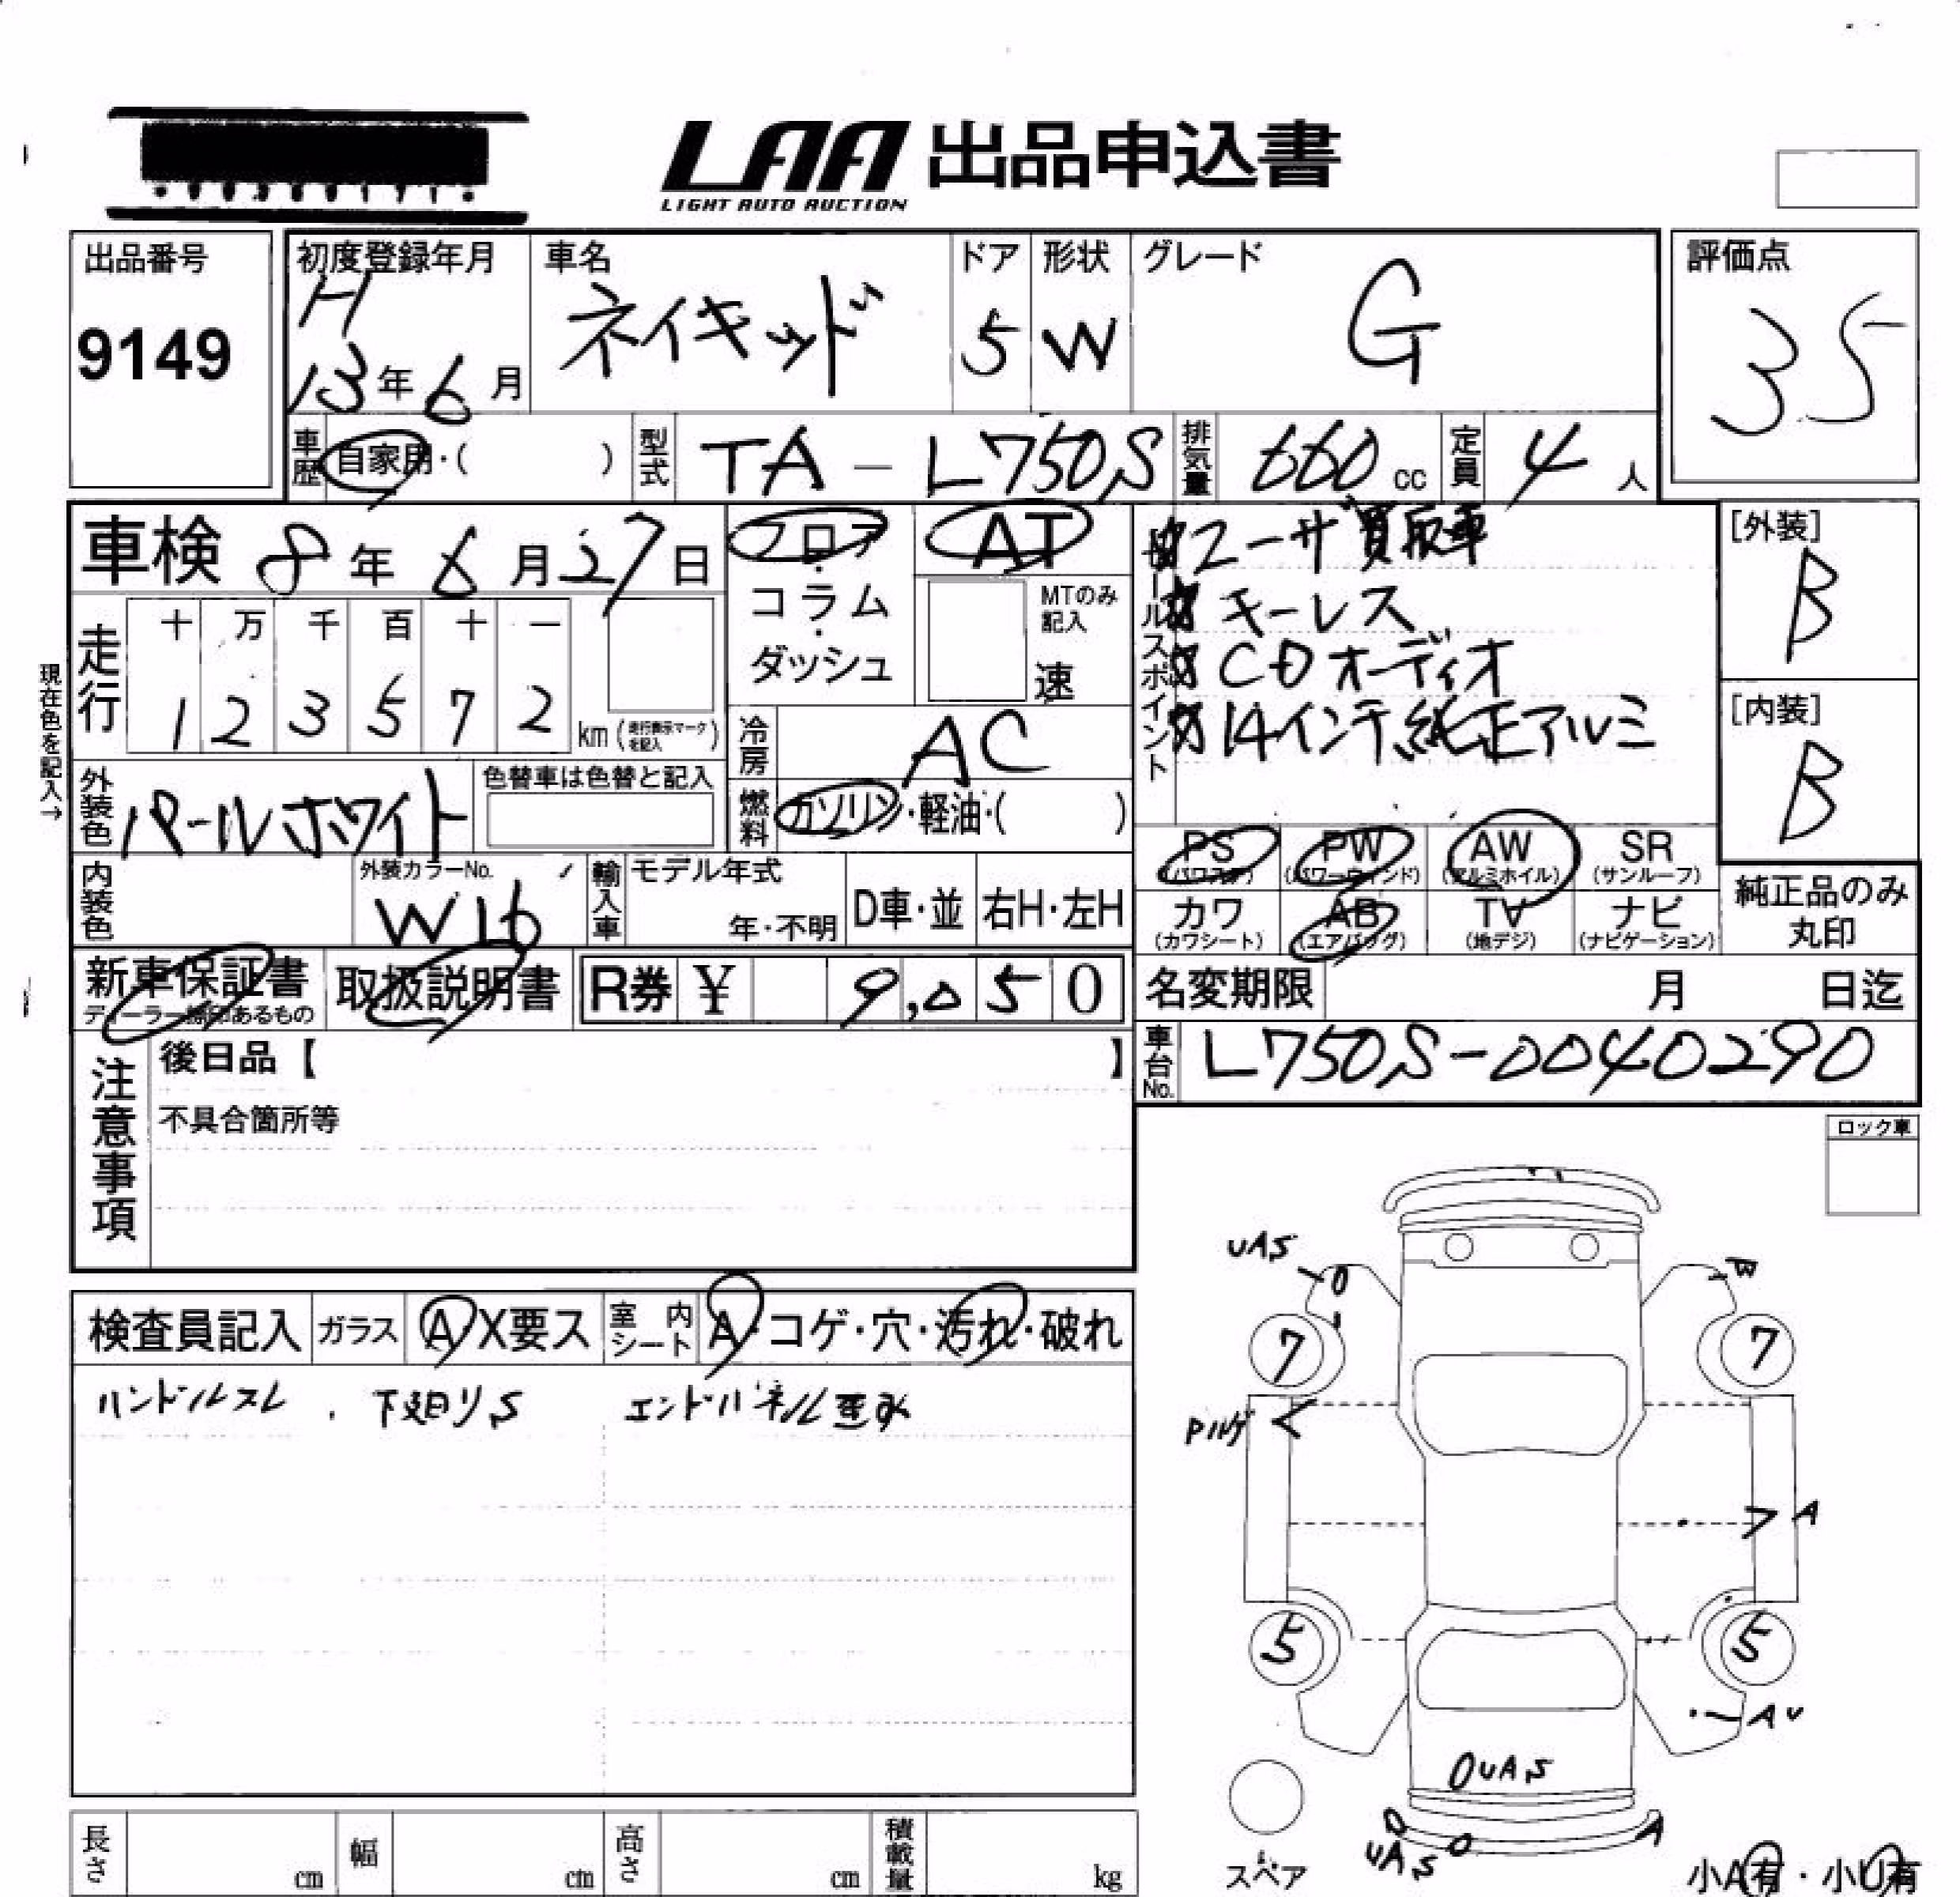 LAA 出品申込書
LIGHT AUTO AUCTION
出品番号
9149
初度登録年月
H
13年6月
車名
ネイキッド
ドア
5
形状
W
グレード
G
評価点
3.5
車歴
自家用・( )
型式
TA-L750S
排気量
660 cc
定員
4 人
車検 8年6月27日
フロア・コラム・ダッシュ
AT
MTのみ記入
速
セールスポイント
ユーザ買取車
キーレス
CDオーディオ
14インチ純正アルミ
[外装]
B
[内装]
B
現在色を記入→
走行
十 万 千 百 十 一
1 2 3 5 7 2
km (走行表示マークを記入)
冷房
AC
外装色
パールホワイト
色替車は色替と記入
燃料
ガソリン・軽油・( )
PS (パワステ)
PW (パワーウィンド)
AW (アルミホイル)
SR (サンルーフ)
カワ (カワシート)
AB (エアバッグ)
TV (地デジ)
ナビ (ナビゲーション)
純正品のみ丸印
内装色
外装カラーNo.
W16
輸入車
モデル年式
年・不明
D車・並
右H・左H
新車保証書
取扱説明書
R券 ¥ 9,050
名変期限 月 日迄
車台No.
L750S-0040290
注意事項
後日品【 】
不具合箇所等
ロック車
検査員記入
ガラス
A・X要ス
室内シート
A・コゲ・穴・汚れ・破れ
ハンドルスレ . 下廻りS エンドパネル歪み
UAS
W
7
7
A
5
5
AU
UAS
UAS
A
スペア
小A有・小U有
長さ cm
幅 cm
高さ cm
積載量 kg